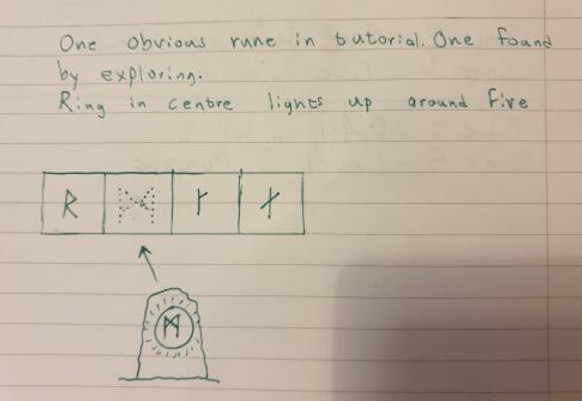 One obvious rune in tutorial. One found
by exploring.
Ring in centre lights up around five
ᚱ ᛞ ᚴ ᚾ
ᛗ